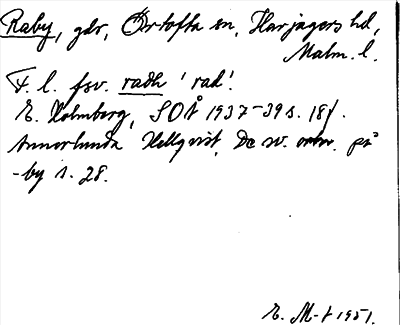 Raby, gdr, Örtofta sn, Harjagers hd,
Malm. l.
F. l. fsv. radh 'rad'.
E. Holmberg, SOÅ 1937-39 s. 18f.
Annorlunda Hellqvist, De sv. ortn. på
-by s. 28.
E. M-t 1951.